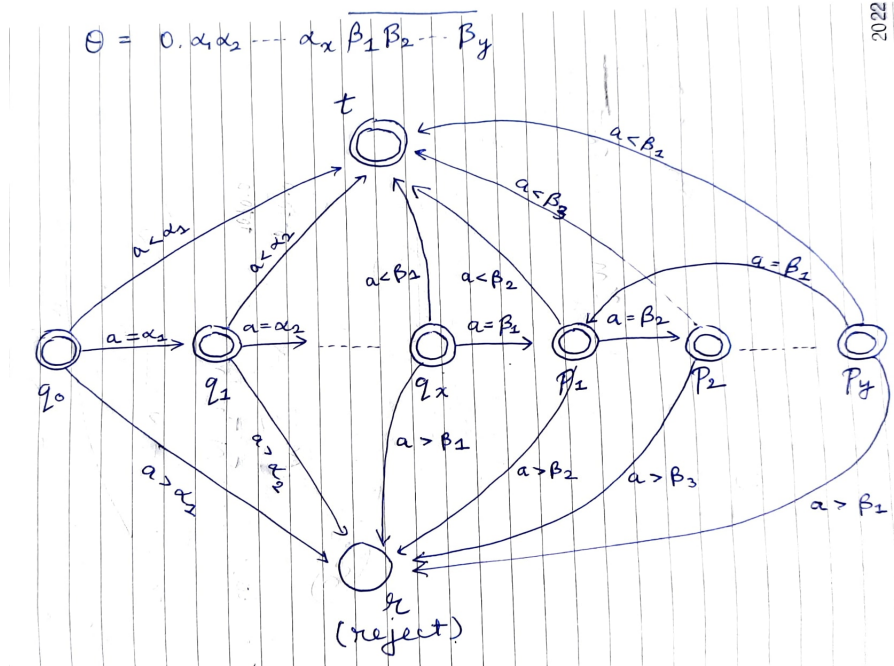 θ = 0.α₁α₂ ---- αₓ β̅₁β̅₂ ---- β̅ᵧ
2022
t
a<β₁
a<β₃
a<α₁
a<α₂
a<β₁
a<β₂
a=β₁
a=α₁
a=α₂
a=β₁
a=β₂
q₀
q₁
qₓ
p₁
p₂
pᵧ
a>α₁
a>α₂
a>β₁
a>β₂
a>β₃
a>β₁
r
(reject)